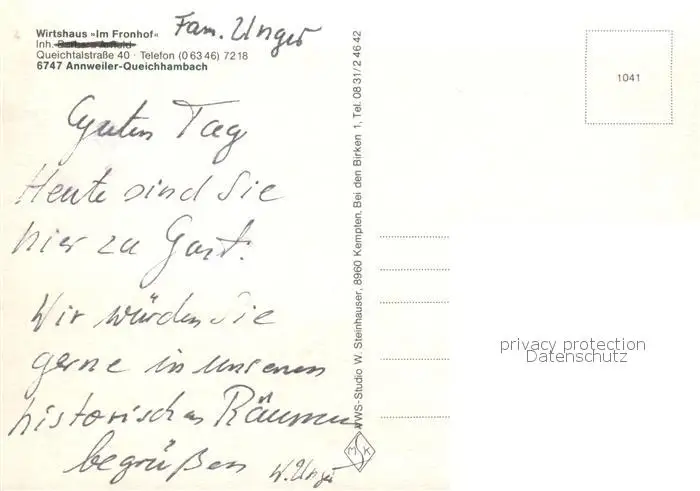 Wirtshaus »Im Fronhof«
Fam. Unger
Inh.
Queichtalstraße 40 · Telefon (0 63 46) 72 18
6747 Annweiler-Queichhambach
Guten Tag
Heute sind Sie
hier zu Gast.
Wir würden Sie
gerne in unseren
historischen Räumen
begrüßen
W. Unger
VWS-Studio W. Steinhauser, 8960 Kempten, Bei den Birken 1, Tel. 08 31/2 46 42
MSK
1041
privacy protection
Datenschutz